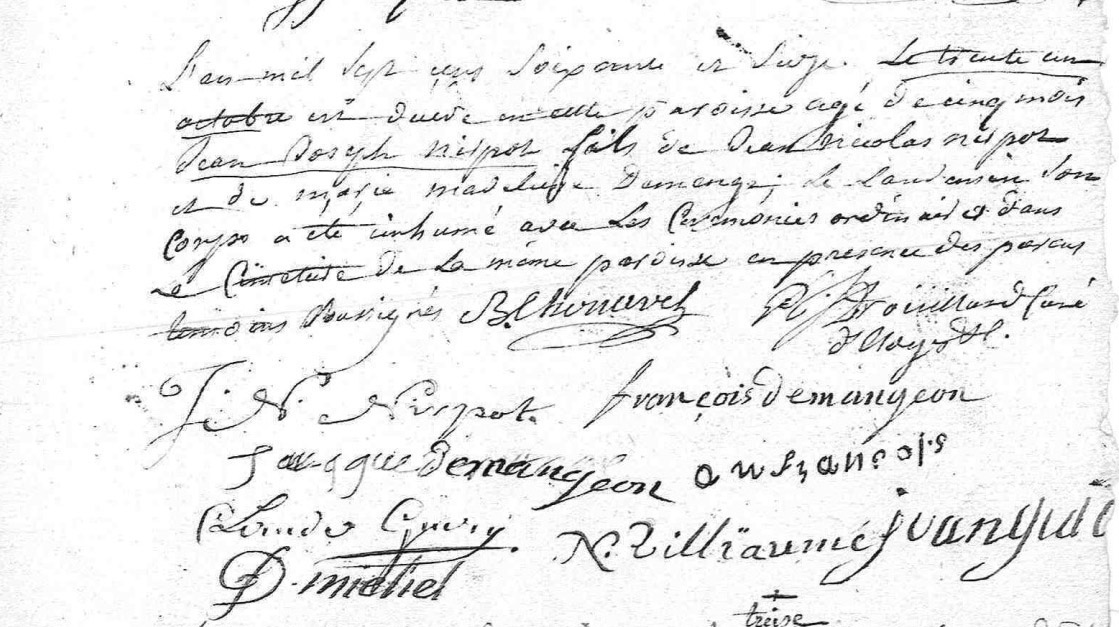 L'an mil sept cens soixante et seize. Le trente un
octobre est decedé en cette paroisse agé de cinq mois
Jean Joseph nispot fils de Jean Nicolas nispot
et de marie madeleine Demenge; Le Landemin son
Corps a été inhumé avec Les Ceremonies ordinaires dans
Le Cimetiere de La même paroisse en presence des parens
temoins soussignés B. Thouavel P. J. Drouillard Curé
J. N. Nispot. françois demangeon
Jacque demangeon françois
Claude Cuny N. Villiaumé jvangide
D. michel
treise